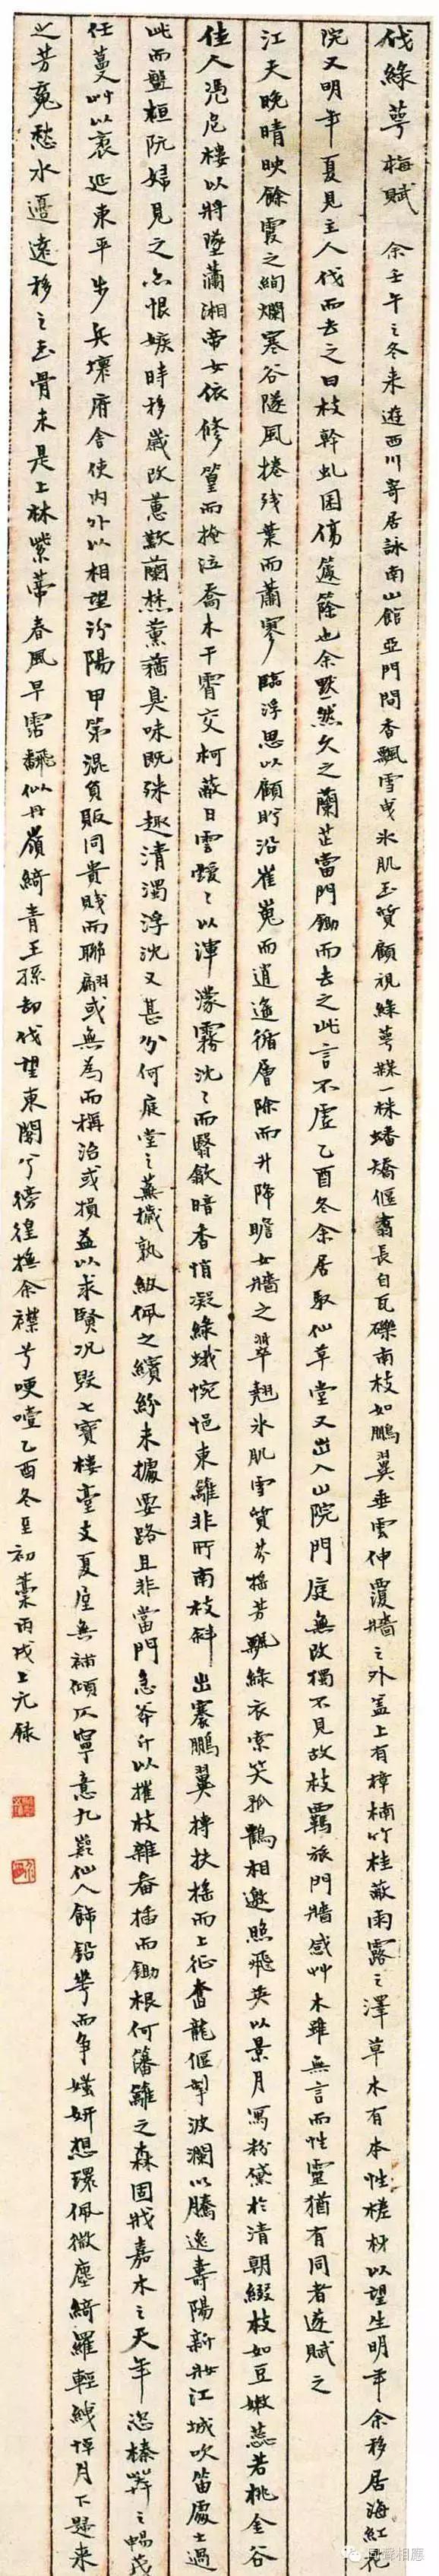 伐綠萼梅賦 余壬午之冬来遊西川寄居詠南山館亞門問香飄雪曳氷肌玉質顧視綠萼楳一株蟠矯偃蹇長自瓦礫南枝如鵬翼垂雲伸覆牆之外蓋上有樟楠竹桂蔽雨露之澤草木有本性槎枒以望生明年余移居海紅花
院又明年夏見主人伐而去之曰枝幹虬困傷籧篨也余默然久之蘭芷當門鋤而去之此言不虛乙酉冬余居取仙草堂又出入山院門庭無改獨不見故枝羈旅門牆感艸木雖無言而性靈猶有同者遂賦之
江天晚晴映餘霞之絢爛寒谷隧風捲残葉而蕭寥臨浮思以顧盻沿崔嵬而逍遥循層除而升降瞻女牆之翠翹氷肌雪質芬摇芳飄綠衣索笑孤鶴相邀照飛英以景月寫粉黛於清朝綴枝如豆嫩蕊若桃金谷
佳人憑危樓以將墜瀟湘帝女依修篁而掩泣喬木干霄交柯蔽日雲靉〻以渾濛霧沈〻而翳歛暗香悄凝綠蛾惋悒東籬非所南枝斜出騫鵬翼摶扶楺而上征奮龍偃掣波瀾以騰逸壽陽新妝江城吹笛處士過
此而盤桓阮婦見之亦恨嫉時移歲改蕙歎蘭愁薰蕕臭味既殊趣清濁浮沈又甚分何庭堂之蕪穢孰級佩之繽紛未據要路且非當門急斧斤以摧枝雜畚插而鋤根何籓籬之森固戕嘉木之天年恣榛莽之暢茂
任蔓艸以袤延東平步兵壞府舍使内外以相望汾陽甲第混負販同貴賤而聯翩或無為而稱治或損益以求賢况毁七寶樓臺支夏屋無補傾仄寧意九嶷仙人飾鉛華而争媸妍想環佩微塵綺羅輕綫怦月下歸来
之芳魂愁水邊遠移之玉骨未是上林紫蒂春風早雪飜似丹嶺綺青王孫却伐望東閣兮徬徨撫余襟兮哽噎乙酉冬至初藁丙戌上元録
同聲相應